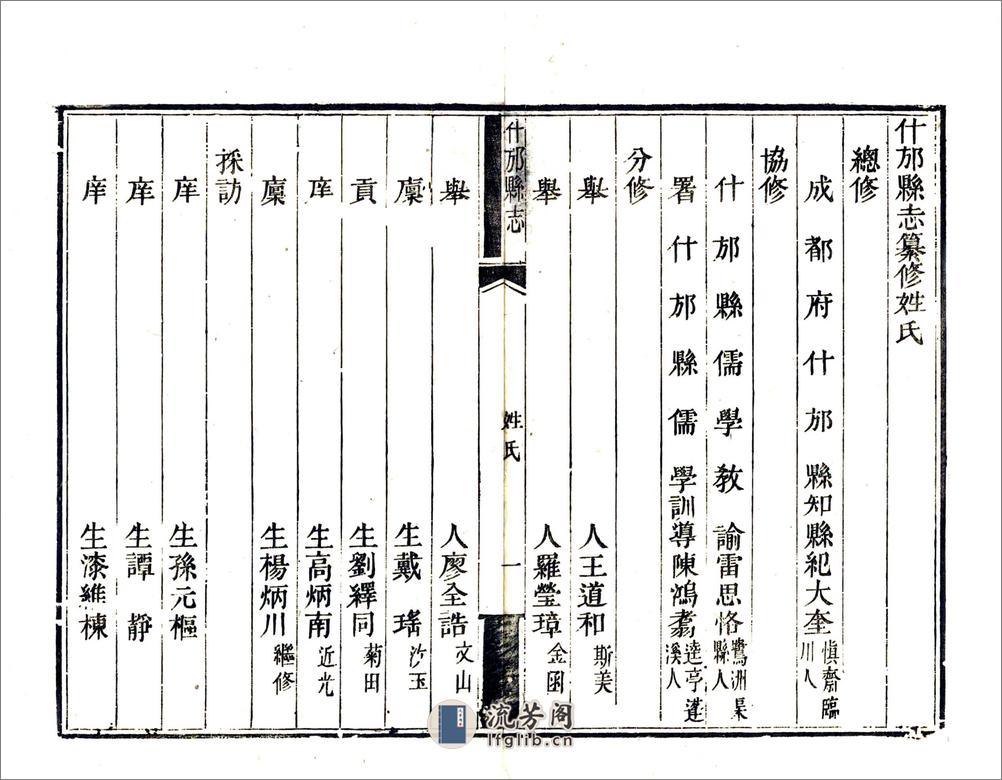 什邡縣志纂修姓氏
總修
成都府什邡縣知縣紀大奎 愼齋臨川人
協修
什邡縣儒學教諭雷思恪 鷺洲 縣人
署什邡縣儒學訓導陳鴻翥 逵亭蓬溪人
分修
舉人王道和 斯美
舉人羅瑩璋 金函
什邡縣志
姓氏
一
舉人廖全誥 文山
廩生戴瑤 沙玉
貢生劉繹同 菊田
庠生高炳南 近光
廩生楊炳川 繼修
採訪
庠生孫元樞
庠生譚靜
庠生漆維棟
流芳阁
lfglib.cn